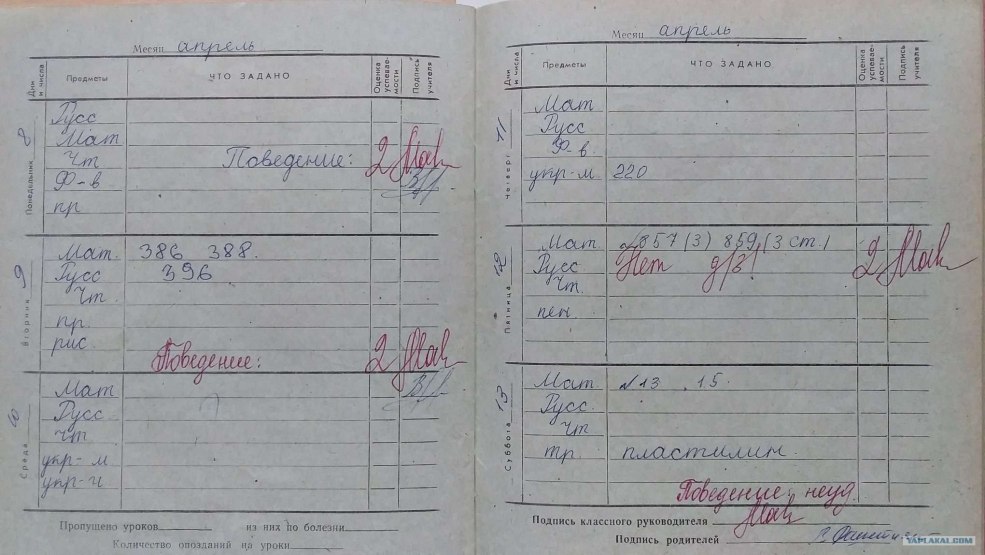 Месяц апрель
Дни и числа Предметы ЧТО ЗАДАНО Оценка успеваемости Подпись учителя
Понедельник 8
Русс
Мат
Чт Поведение: 2
Ф-в
пр
Вторник 9
Мат. 386 388.
Русс 396
Чт.
пр.
рис.
Поведение: 2
Среда
Мат
Русс
Чт
укр-м
укр-ч
Пропущено уроков из них по болезни
Количество опозданий на уроки
Месяц апрель
Дни и числа Предметы ЧТО ЗАДАНО Оценка успеваемости Подпись учителя
Четверг 11
Мат
Русс
Ф-в
укр-м 220
Пятница 12
Мат. 857 (3) 859, (3 ст.)
Русс Нет д/з! 2
Чт.
пен.
Суббота 13
Мат. №13 15.
Русс.
Чт
тр. пластилин.
Поведение: неуд.
Подпись классного руководителя
Подпись родителей
YAPLAKAL.COM